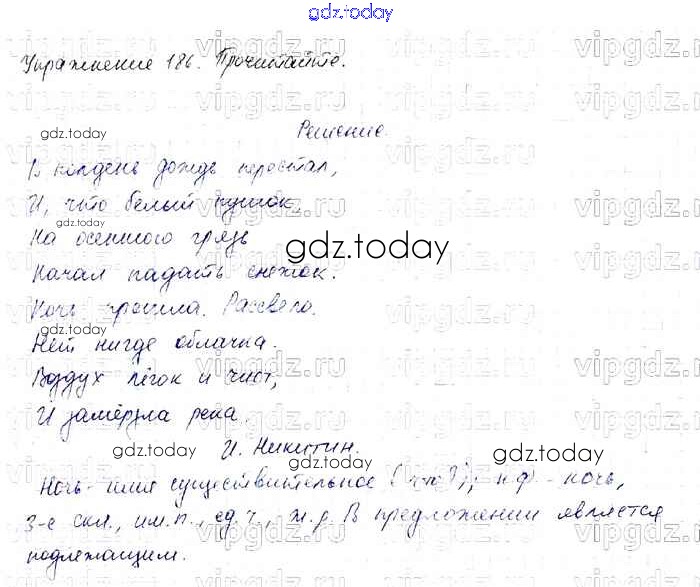 gdz.today
Упражнение 186. Прочитайте.
Решение.
gdz.today
В полдень дождь перестал,
И, что белый пушок,
gdz.today
На осеннюю грязь
gdz.today
Начал падать снежок.
Ночь прошла. Рассвело.
Нет нигде облачка.
Воздух лёгок и чист,
И замёрзла река.
gdz.today
И. Никитин.
gdz.today
Ночь - имя существительное (что?), н.ф. - ночь,
3-е скл., им.п., ед.ч., ж.р. В предложении является
подлежащим.
vipgdz.ru